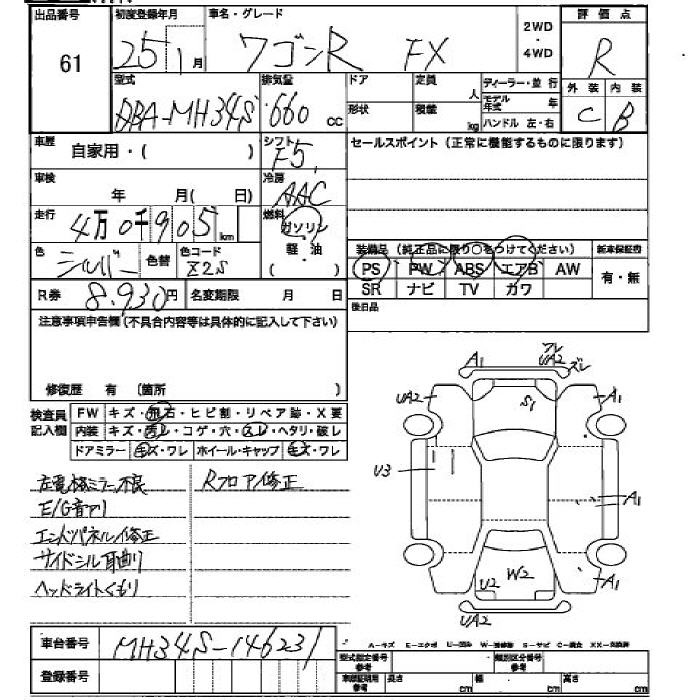 出品番号 初度登録年月 車名・グレード 評価点
61 25 1月 ワゴンR FX 2WD・4WD R
型式 排気量 ドア 定員 人 ディーラー・並行 外装 内装
DBA-MH34S 660cc 形状 積載 kg モデル年式 年 C B
ハンドル 左・右
車歴 自家用・( ) シフト F5 セールスポイント(正常に機能するものに限ります)
車検 年 月(日) 冷房 AAC
走行 4万0千905km 燃料 ガソリン
色 シルバー 色替 色コード Z2S 軽・油 ( ) 装備品(純正品に限り○をつけてください) 新車保証書
PS PW ABS エアB AW 有・無
R券 8.930円 名変期限 月 日 SR ナビ TV カワ
後日品
注意事項申告欄(不具合内容等は具体的に記入して下さい)
修復歴 有 (箇所 )
検査員記入欄 FW キズ・飛石・ヒビ割・リペア跡・X要
内装 キズ・汚レ・コゲ・穴・スレ・ヘタリ・破レ
ドアミラー キズ・ワレ ホイール・キャップ キズ・ワレ
左電格ミラー不良 Rフロア修正
E/G音アリ
エンドパネル修正
サイドシル耳曲り
ヘッドライトくもり
A1 フレ UA2 ズレ
UA2 S1 A1
U3 A1
U2 W2 A1
UA2
車台番号 MH34S-146231
登録番号
A-キズ E-エクボ
型式指定番号 参考 類別区分番号 参考
車庫証明用 参考 長さ cm 幅 cm 高さ cm